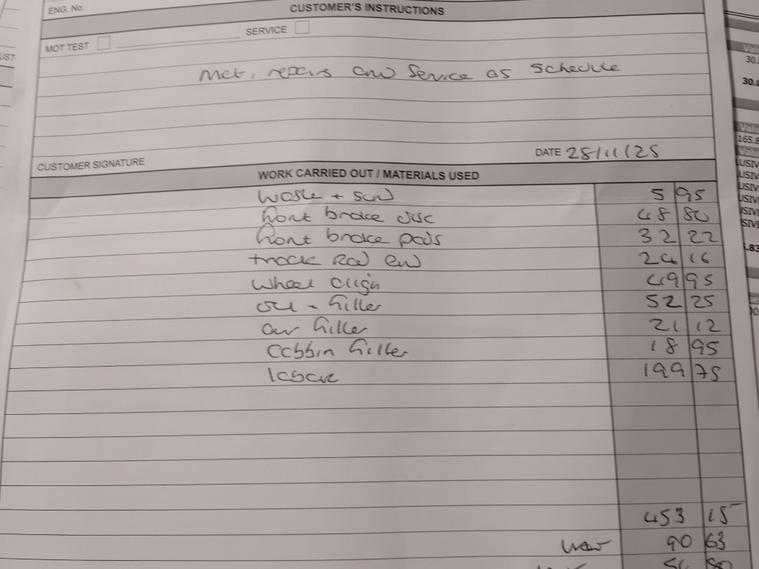 ENG. No.
CUSTOMER'S INSTRUCTIONS
MOT TEST SERVICE
Mot, repairs and Service as Schedule
CUSTOMER SIGNATURE DATE 28/11/25
WORK CARRIED OUT / MATERIALS USED
Waste + sund 5 95
front brake disc 48 80
front brake pads 32 22
track Rod end 24 16
Wheel align 49 95
oil + filter 52 25
air filter 21 12
Cabbin filter 18 95
labour 199 75
453 15
VAT 90 63